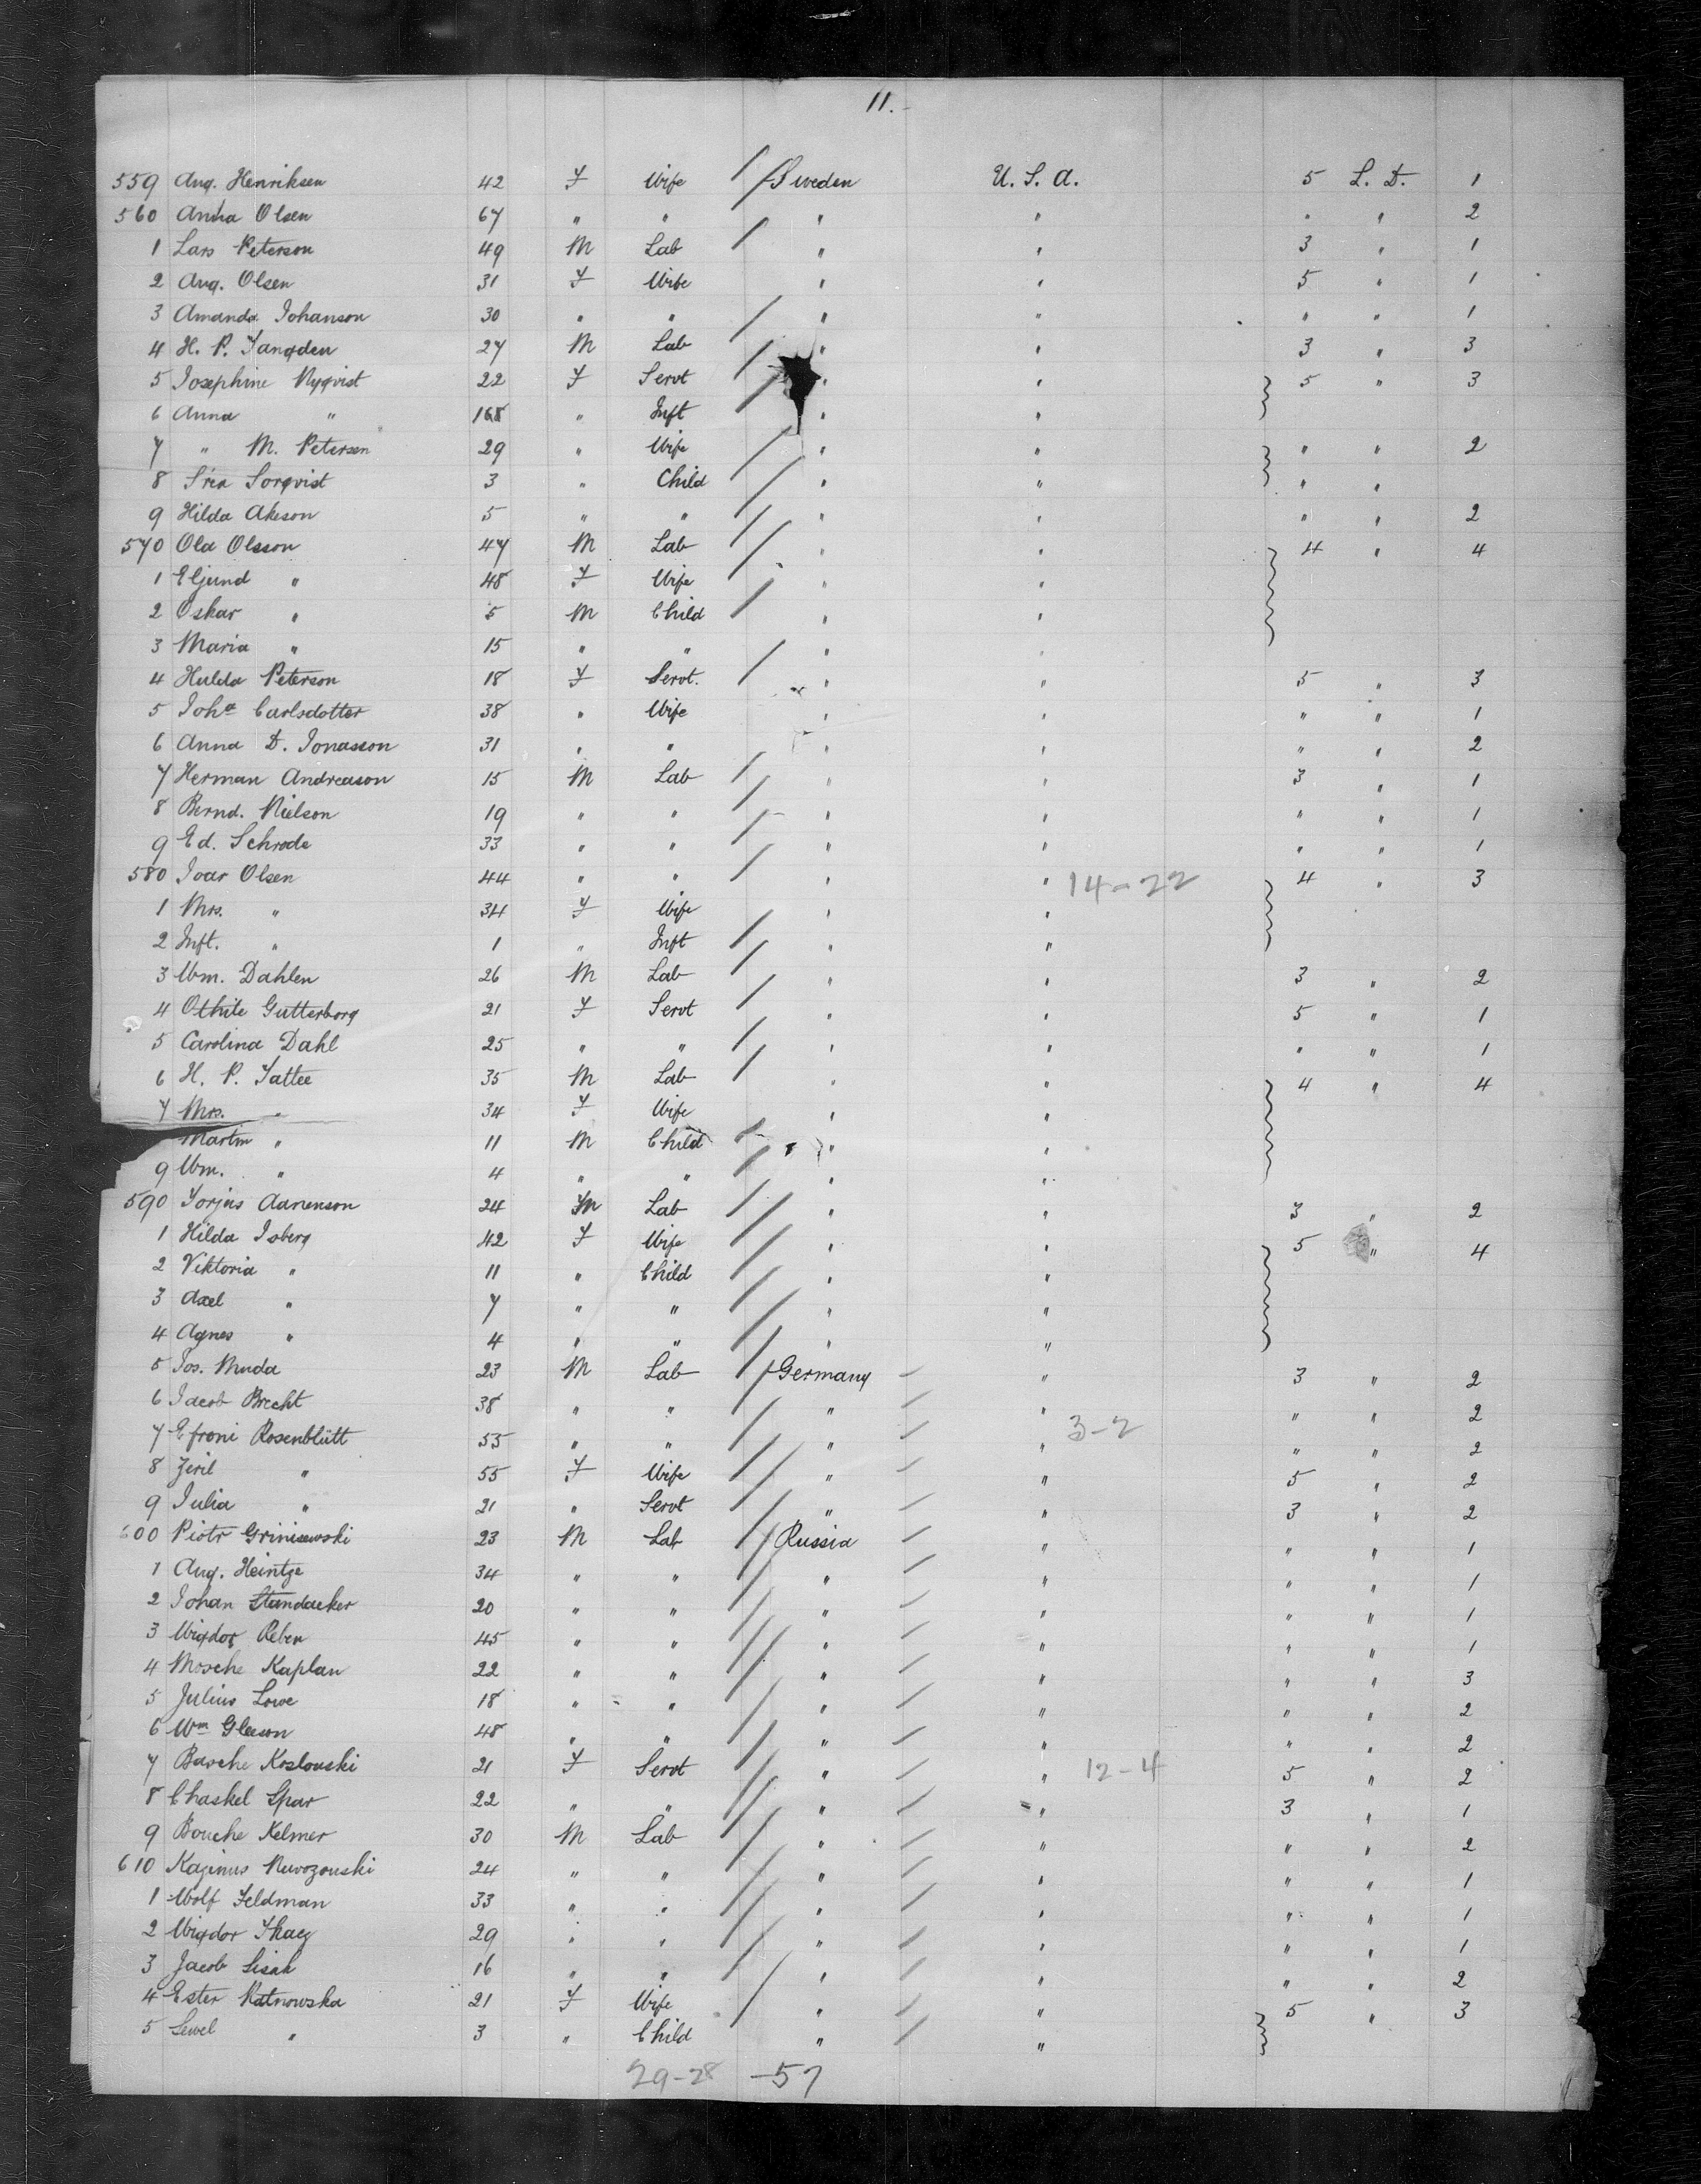 11.
559 Aug. Henriksen 42 F Wife Sweden U.S.A. 5 L. D. 1
560 Anna Olsen 67 " " " " " " 2
1 Lars Peterson 49 M Lab " " 3 " 1
2 Aug. Olsen 31 F Wife " " 5 " 1
3 Amanda Johanson 30 " " " " " " 1
4 H. P. Tangden 27 M Lab " " 3 " 3
5 Josephine Nyqvist 22 F Servt " " 5 " 3
6 Anna " " Inft " "
7 " M. Petersen 29 " Wife " " " " 2
8 Sorqvist 3 " Child " " " "
9 Hilda Akeson 5 " " " " " " 2
570 Ola Olsson 47 M Lab " " 4 " 4
1 Eljund " 48 F Wife " "
2 Oskar " 5 M Child " "
3 Maria " 15 " " " "
4 Hulda Peterson 18 F Servt. " " 5 " 3
5 Joha Carlsdotter 38 " Wife " " " " 1
6 Anna D. Jonasson 31 " " " " " " 2
7 Herman Andreason 15 M Lab " " 3 " 1
8 Bernd. Nielson 19 " " " " " " 1
9 Ed. Schrode 33 " " " " " " 1
580 Ivar Olsen 44 " " " " 14-22 4 " 3
1 Mrs. " 34 F Wife " "
2 Inft. " 1 " Inft " "
3 Wm. Dahlen 26 M Lab " " 3 " 2
4 Othile Gutterborg 21 F Servt " " 5 " 1
5 Carolina Dahl 25 " " " " " " 1
6 H. P. Tattee 35 M Lab " " 4 " 4
7 Mrs. " 34 F Wife " "
Martin " 11 M Child " "
9 Wm. " 4 " " " "
590 Torjus Aanenson 24 M Lab " " 3 " 2
1 Hilda Isberg 42 F Wife " " 5 " 4
2 Viktoria " 11 " Child " "
3 Axel " 7 " " " "
4 Agnes " 4 " " " "
5 Jos. Muda 23 M Lab Germany " 3 " 2
6 Jacob Brecht 38 " " " " " " 2
7 Efroni Rosenblütt 53 " " " " 3-2 " " 2
8 Zeril " 55 F Wife " " 5 " 2
9 Julia " 21 " Servt " " 3 " 2
600 Piotr Griniszewski 23 M Lab Russia " " " 1
1 Aug. Heintze 34 " " " " " " 1
2 Johan Standacker 20 " " " " " " 1
3 Wigdor Reben 45 " " " " " " 1
4 Mosche Kaplan 22 " " " " " " 3
5 Julius Lowe 18 " " " " " " 2
6 Wm Gleeson 48 " " " " " " 2
7 Basche Koslouski 21 F Servt " " 12-4 5 " 2
8 Chaskel Spar 22 " " " " 3 " 1
9 Bouche Kelmer 30 M Lab " " " " 2
610 Kazimus 24 " " " " " " 1
1 Wolf Feldman 33 " " " " " " 1
2 Wigdor 29 " " " " " " 1
3 Jacob Lisak 16 " " " " " " 2
4 Ester Ratnowska 21 F Wife " " 5 " 3
5 Lewel " 3 " Child " "
29-28 -57